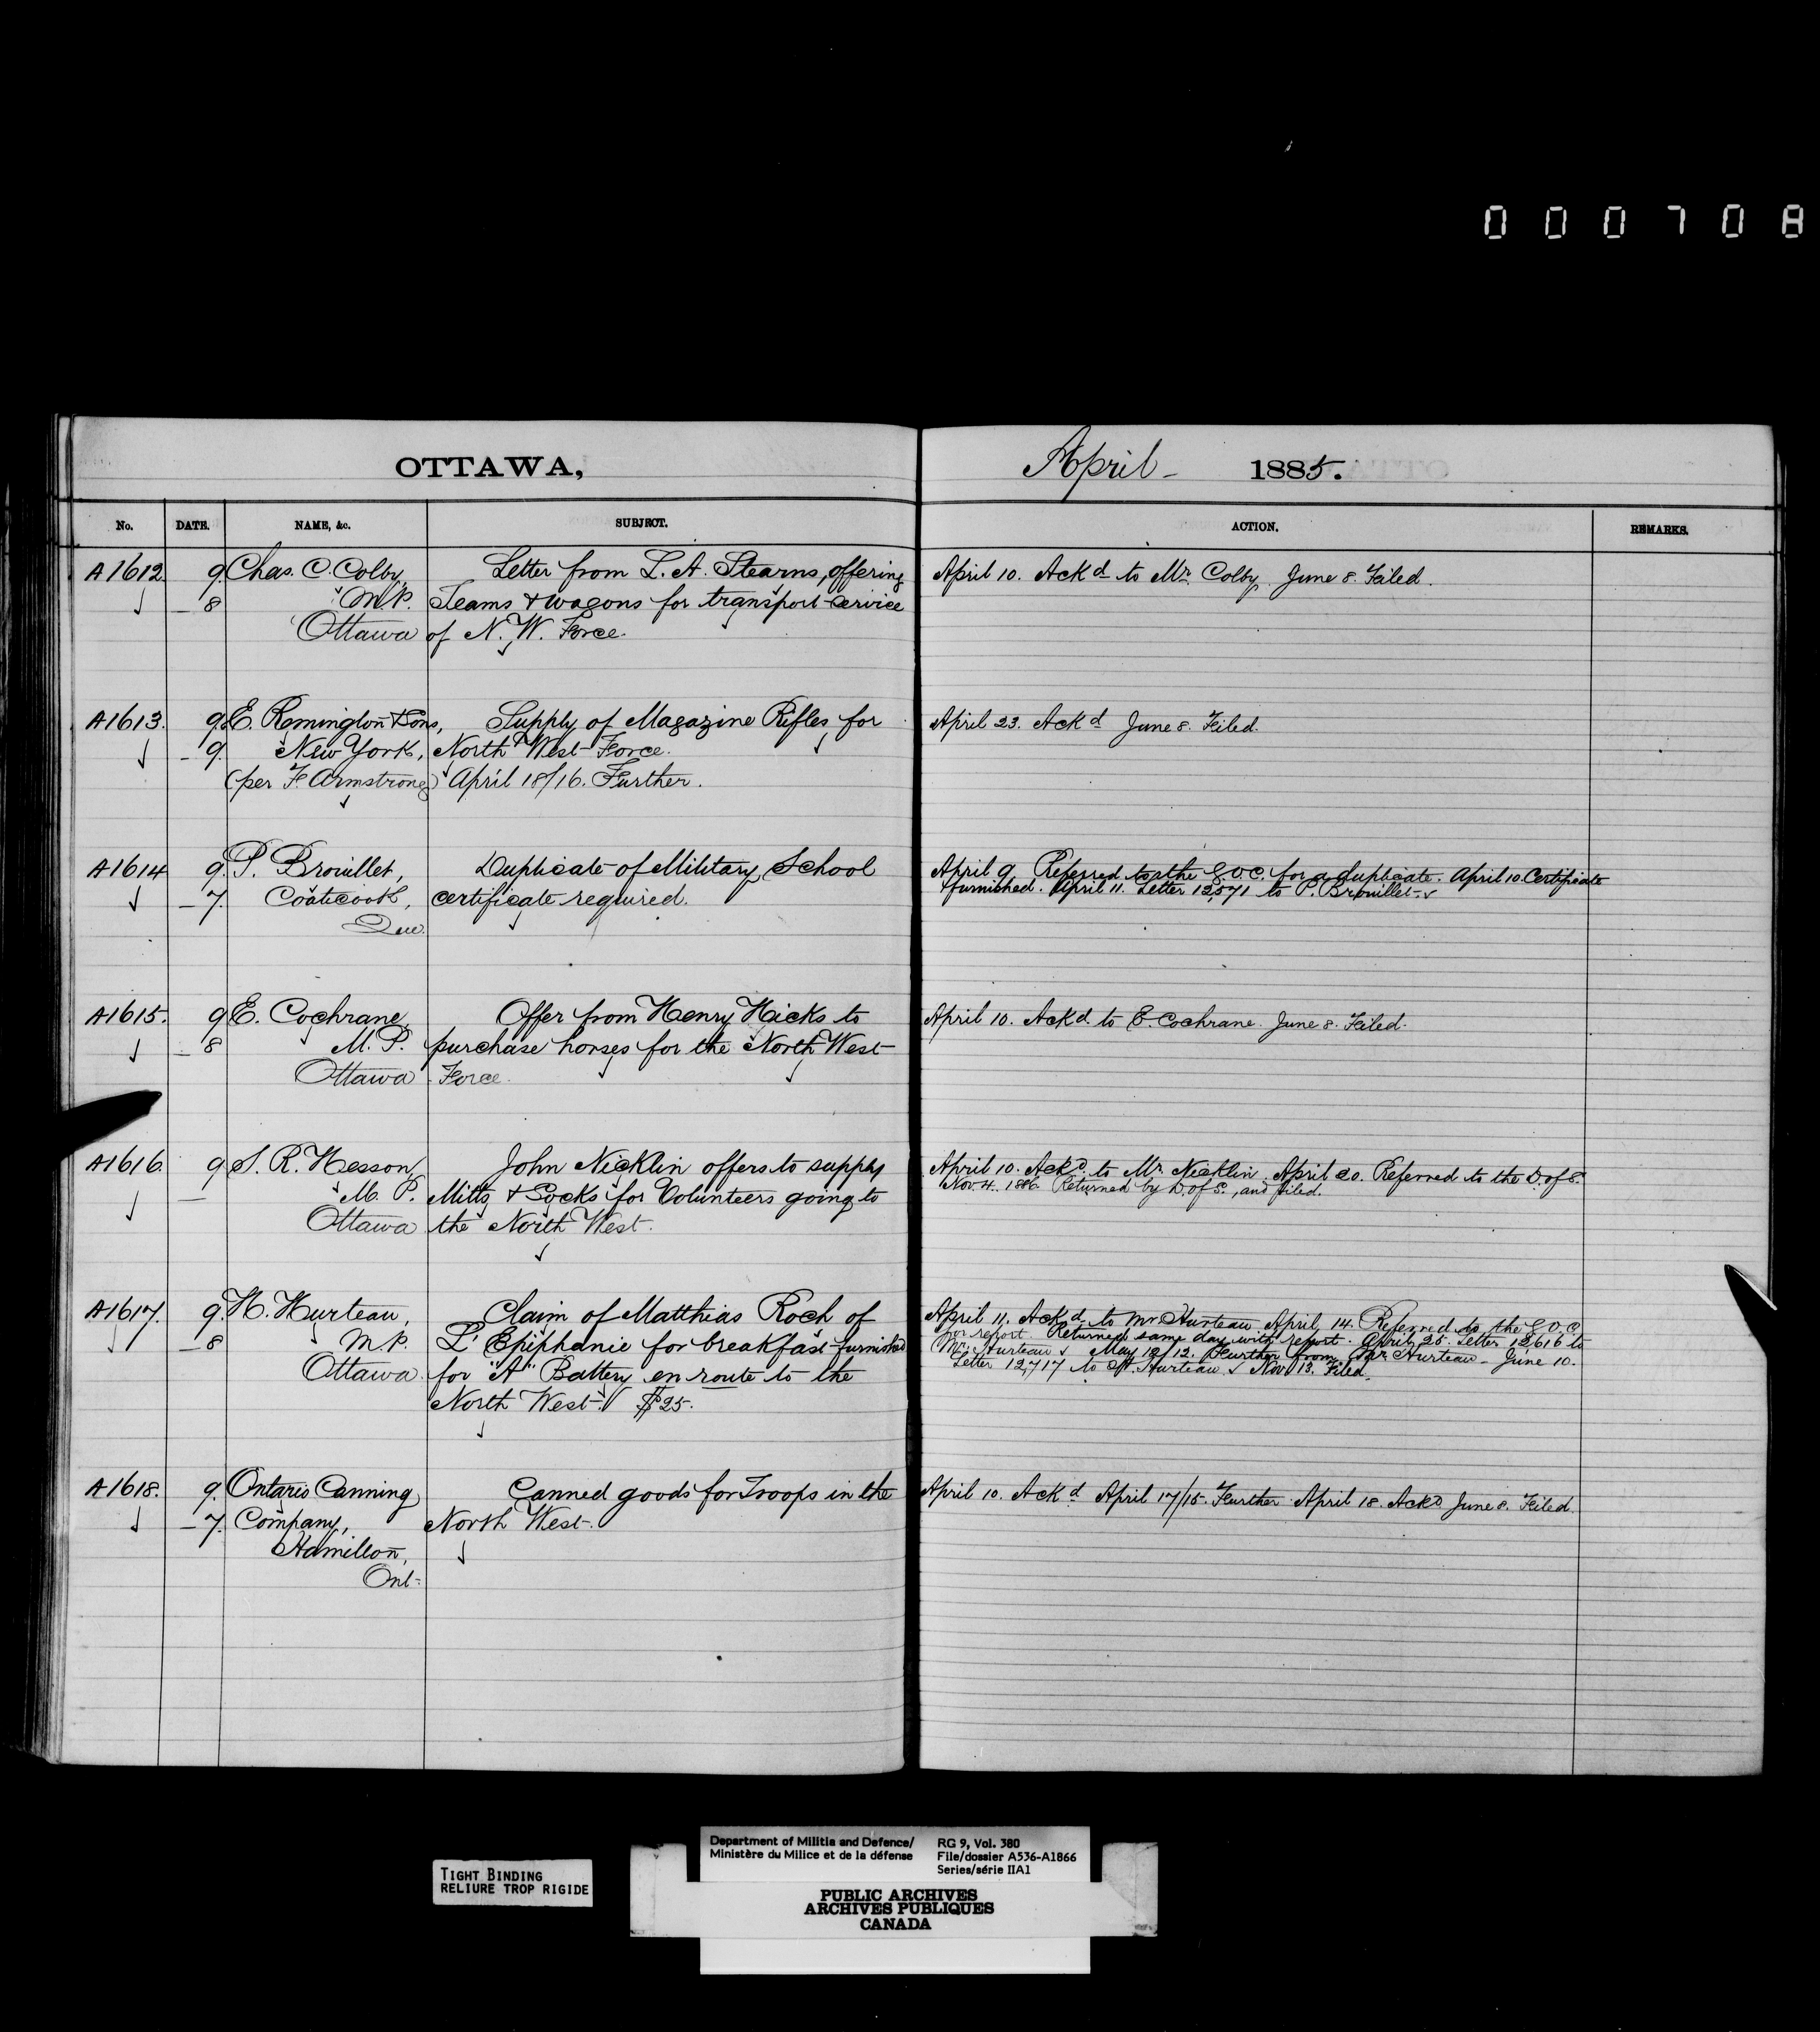 000708
OTTAWA,
April 1885.
No. DATE. NAME, &c. SUBJECT. ACTION. REMARKS.
A1612. 9. Chas. C. Colby, Letter from L. A. Stearns, offering April 10. Ackd to Mr. Colby. June 8. Filed.
– 8 M.P. Teams & wagons for transport service
Ottawa of N. W. Force.
A1613. 9. E. Remington & Sons, Supply of Magazine Rifles for April 23. Ackd June 8. Filed.
– 9. New York, North West Force.
(per F. Armstrong) April 18/16. Further.
A1614 9. P. Brouillet, Duplicate of Military School April 9. Referred to the G.O.C. for a duplicate. April 10. Certificate
– 7. Coaticook, certificate required. furnished. April 11. Letter 12,571 to P. Brouillet.
Que.
A1615. 9. E. Cochrane, Offer from Henry Hicks to April 10. Ackd. to E. Cochrane. June 8. Filed.
– 8 M. P. purchase horses for the North West
Ottawa Force.
A1616. 9. S. R. Hesson, John Nicklin offers to supply April 10. Ackd. to Mr. Nicklin. April 20. Referred to the D. of S.
– M. P. Mitts & Socks for Volunteers going to Nov. 4. 1886. Returned by D. of S., and filed.
Ottawa the North West.
A1617. 9. H. Hurteau, Claim of Matthias Roch of April 11. Ackd. to Mr Hurteau April 14. Referred to the G.O.C.
– 8 M.P. L'Epiphanie for breakfast furnished for report. Returned same day with report. April 25. Letter 12,616 to
Ottawa for "A" Battery en route to the Mr. Hurteau May 12/12. Further from Mr Hurteau – June 10.
North West. $25. Letter 12,717 to Hurteau. Nov. 13. Filed.
A1618. 9. Ontario Canning Canned goods for Troops in the April 10. Ackd April 17/15. Further April 18. Ackd June 8. Filed.
– 7. Company, North West.
Hamilton,
Ont.
TIGHT BINDING
RELIURE TROP RIGIDE
Department of Militia and Defence/ RG 9, Vol. 380
Ministère du Milice et de la défense File/dossier A536-A1866
Series/série IIA1
PUBLIC ARCHIVES
ARCHIVES PUBLIQUES
CANADA